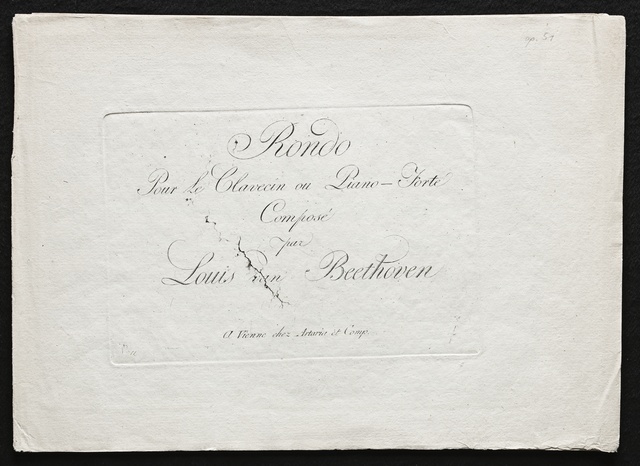 op. 51
Rondo
Pour Le Clavecin ou Piano-Forté
Composé
par
Louis van Beethoven
A Vienne chez Artaria et Comp.